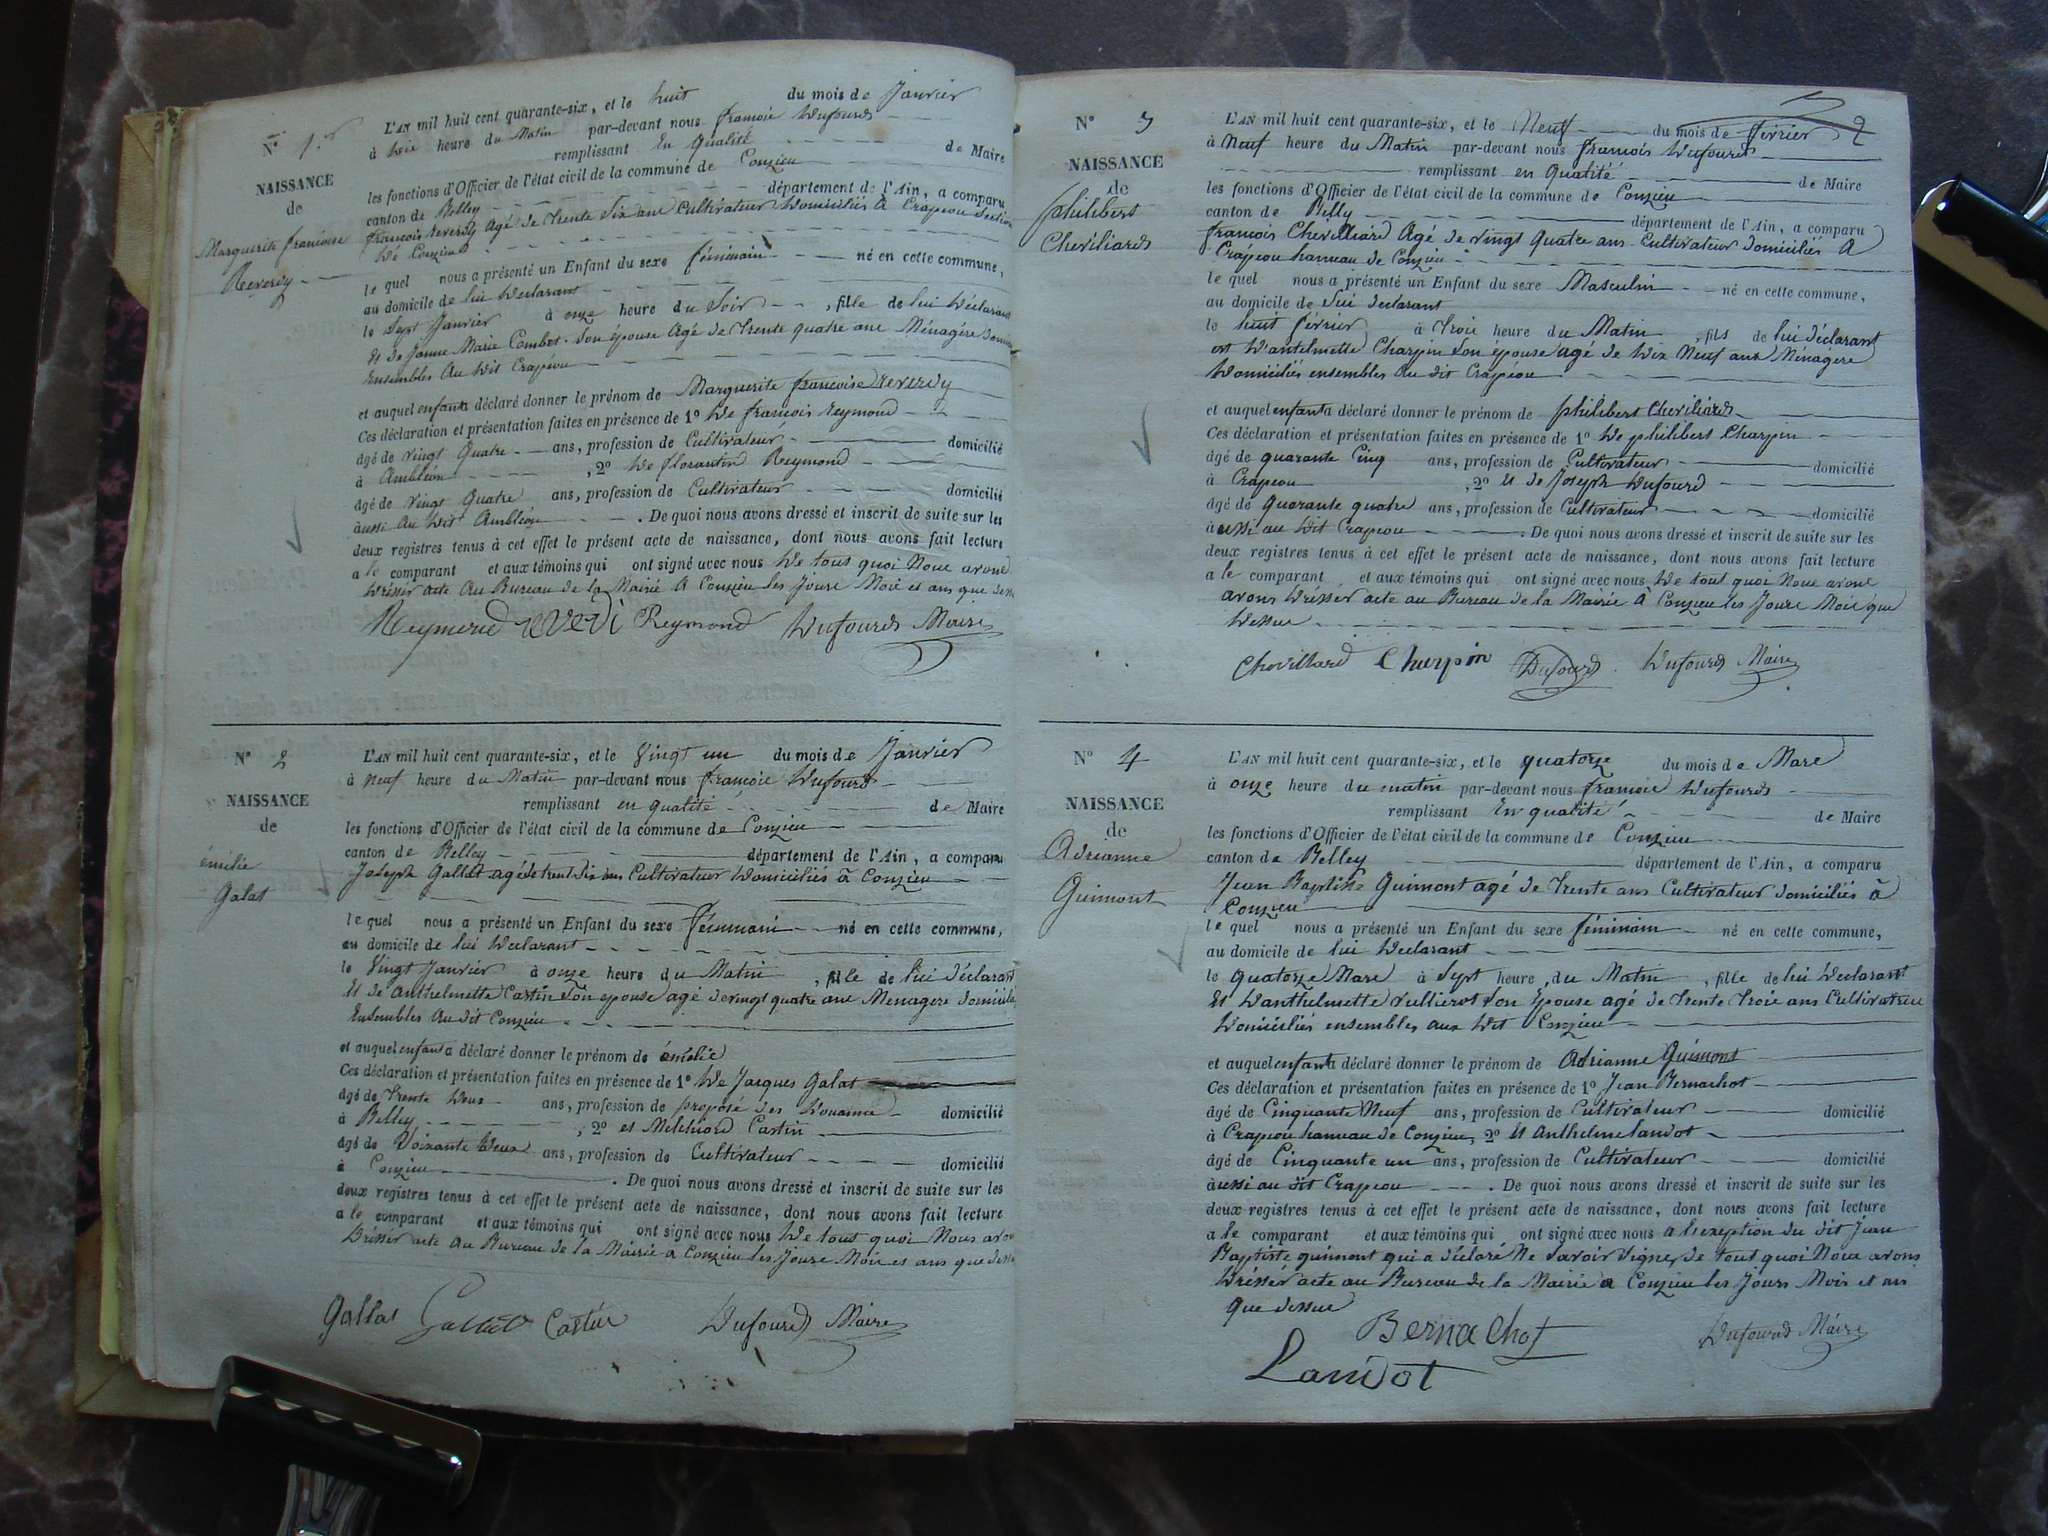 N° 1.er
NAISSANCE
de
Marguerite francoise
Reverdy
L'AN mil huit cent quarante-six, et le huit du mois de Janvier
à Dix heure du Matin par-devant nous francois Dufourd
remplissant En Qualité de Maire
les fonctions d'Officier de l'état civil de la commune de Conzieu
canton de Belley département de l'Ain, a comparu
francois reverdy Agé de Trente Six ans Cultivateur Domiciliés A Crapeou Section
De Conzieu
le quel nous a présenté un Enfant du sexe féminain né en cette commune,
au domicile de lui Declarant
le Sept Janvier à onze heure du Soir, fille de lui Déclarant
Et de Jeanne Marie Combet Son épouse Agé de Trente quatre ans Ménagère
Ensembles Au Dit Crapeou
et auquel enfant a déclaré donner le prénom de Marguerite francoise reverdy
Ces déclaration et présentation faites en présence de 1° De francois reymond
âgé de vingt Quatre ans, profession de Cultivateur domicilié
à Ambléon, 2° De florantin Reymond
âgé de vingt Quatre ans, profession de Cultivateur domicilié
àussi Au Dit Ambléon. De quoi nous avons dressé et inscrit de suite sur les
deux registres tenus à cet effet le présent acte de naissance, dont nous avons fait lecture
a le comparant et aux témoins qui ont signé avec nous De tous quoi Nous avons
Drésser acte Au Bureau de la Mairie A Conzieu les Jours Mois et ans que
Reymond reverdi Reymond Dufourd Maire
N° 2
NAISSANCE
de
émilie
Galat
L'AN mil huit cent quarante-six, et le Vingt un du mois de Janvier
à neuf heure du Matin par-devant nous francois Dufourd
remplissant en qualité de Maire
les fonctions d'Officier de l'état civil de la commune de Conzieu
canton de Belley département de l'Ain, a comparu
Joseph Gallat agé de trent Six ans Cultivateur Domiciliés à Conzieu
le quel nous a présenté un Enfant du sexe féminain né en cette commune,
au domicile de lui Declarant
le Vingt Janvier à onze heure du Matin, fille de lui déclarant
Et de Anthelmette Castin Son épouse agé de vingt quatre ans Menagere
Ensembles Au dit Conzieu
et auquel enfant a déclaré donner le prénom de émélie
Ces déclaration et présentation faites en présence de 1° De Jacques Galat
âgé de Trente Deux ans, profession de proposé des Douanne domicilié
à Belley, 2° et Melchiord Castin
âgé de Soixante Deux ans, profession de Cultivateur domicilié
à Conzieu. De quoi nous avons dressé et inscrit de suite sur les
deux registres tenus à cet effet le présent acte de naissance, dont nous avons fait lecture
a le comparant et aux témoins qui ont signé avec nous De tous quoi Nous
Drésser acte Au Bureau de la Mairie a Conzieu les Jours Mois et ans que
Gallat Castin Dufourd Maire
2
N° 3
NAISSANCE
de
philibert
Cheviliard
L'AN mil huit cent quarante-six, et le Neuf du mois de février
à Neuf heure du Matin par-devant nous francois Dufourd
remplissant en Qualité de Maire
les fonctions d'Officier de l'état civil de la commune de Conzieu
canton de Belly département de l'Ain, a comparu
francois Chevilliard Agé de vingt Quatre ans Cultivateur domiciliés A
Crapeou hameau de Conzieu
le quel nous a présenté un Enfant du sexe Masculin né en cette commune,
au domicile de lui declarant
le huit février à trois heure du Matin, fils de lui déclarant
et D'antelmette Charpin Son épouse agé de Dix Neuf ans Ménagere
Domiciliés ensembles Au dit Crapeou
et auquel enfant a déclaré donner le prénom de philibert Cheviliard
Ces déclaration et présentation faites en présence de 1° De philibert Charpin
âgé de quarante Cinq ans, profession de Cultivateur domicilié
à Crapeou, 2° Et de Joseph Dufourd
âgé de Quarante quatre ans, profession de Cultivateur domicilié
àussi au Dit Crapeou. De quoi nous avons dressé et inscrit de suite sur les
deux registres tenus à cet effet le présent acte de naissance, dont nous avons fait lecture
a le comparant et aux témoins qui ont signé avec nous De tout quoi Nous avons
avons Drésser acte au Bureau de la Mairie à Conzieu les Jours Mois que
Dessus
Chevillard Cherpin Dufourd Dufourd Maire
N° 4
NAISSANCE
de
Adrianne
Guimont
L'AN mil huit cent quarante-six, et le quatorze du mois de Mars
à onze heure du matin par-devant nous francois Dufourd
remplissant En qualité de Maire
les fonctions d'Officier de l'état civil de la commune de Conzieu
canton de Belley département de l'Ain, a comparu
Jean Baptiste Guimont agé de Trente ans Cultivateur domiciliés à
Conzieu
le quel nous a présenté un Enfant du sexe féminain né en cette commune,
au domicile de lui Declarant
le quatorze Mars à Sept heure du Matin, fille de lui Declarant
Et Danthelmette rullierot Son Epouse agé de Trente Trois ans Cultivatrice
Domiciliés ensembles aux Dit Conzieu
et auquel enfant a déclaré donner le prénom de Adrianne Guimont
Ces déclaration et présentation faites en présence de 1° Jean Bernachot
âgé de Cinquante Neuf ans, profession de Cultivateur domicilié
à Crapeou hameau de Conzieu, 2° Et Anthelme landot
âgé de Cinquante un ans, profession de Cultivateur domicilié
àussi au dit Crapeou. De quoi nous avons dressé et inscrit de suite sur les
deux registres tenus à cet effet le présent acte de naissance, dont nous avons fait lecture
a le comparant et aux témoins qui ont signé avec nous a lexeption du dit Jean
Baptiste guimont qui a déclaré Ne Savoir Signer, de tout quoi Nous avons
Drésser acte au Bureau de la Mairie a Conzieu les Jours Mois et an
que dessus
Bernachot Dufourd Maire
Landot